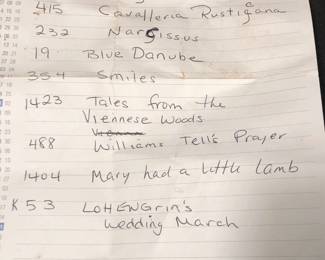 415 Cavalleria Rusticana
232 Narcissus
19 Blue Danube
354 Smiles
1423 Tales from the
Viennese Woods
488 Williams Tell's Prayer
1404 Mary had a little lamb
K53 LOHENGrin's
Wedding March